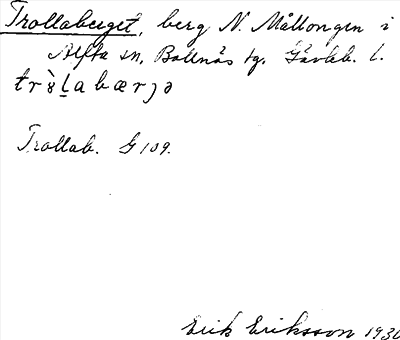 Trollaberget, berg N. Mållongen i
Alfta sn, Bollnäs tg. Gävleb. l.
trò̤l̲abærjə
Trollab. G 109.
Erik Eriksson 1930